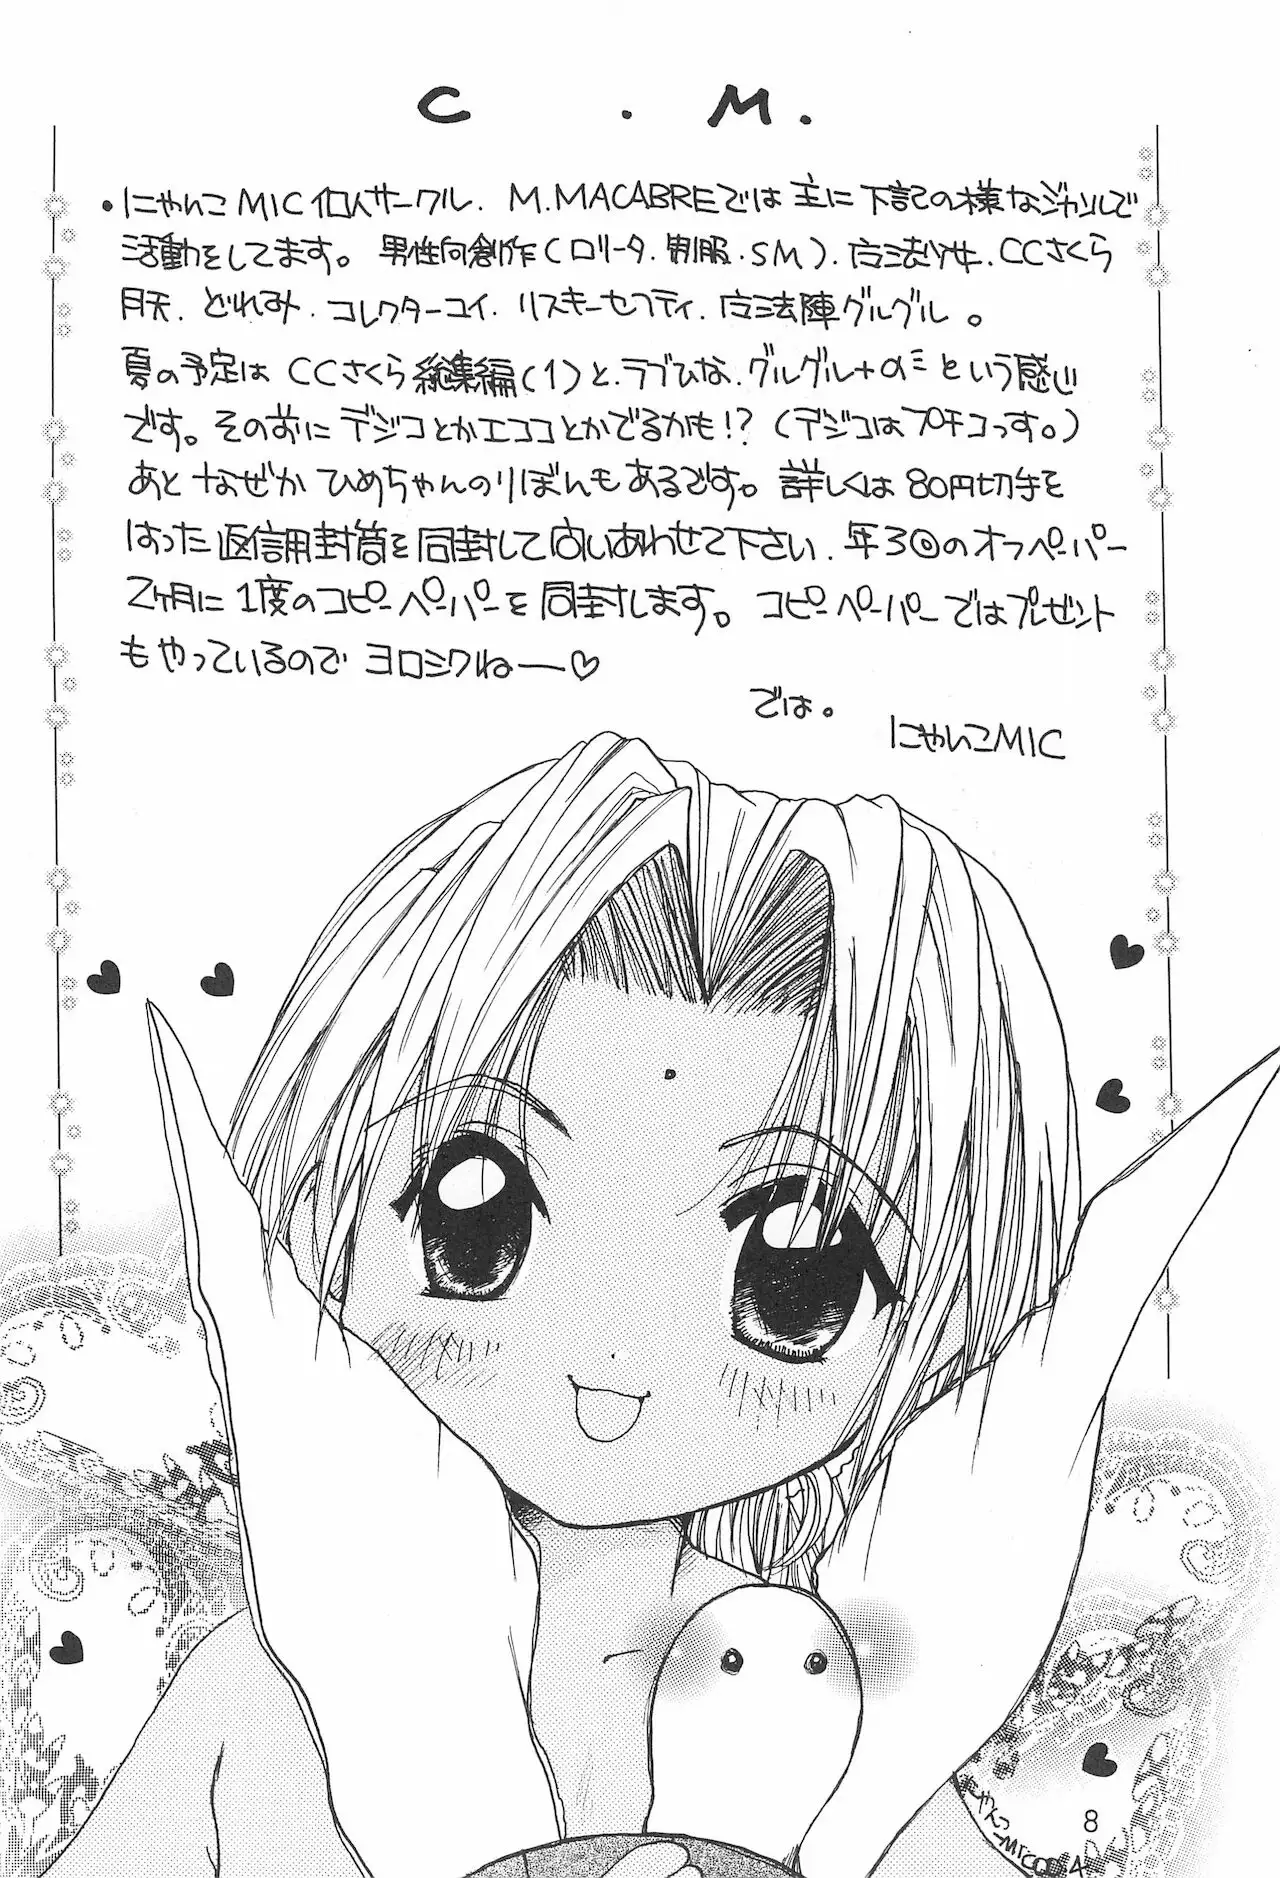 C . M.
・にゃんこMIC個人サークル. M.MACABREでは主に下記の様なジャンルで
活動をしてます。男性向創作(ロリータ.制服.SM).魔法少女.CCさくら
月天. どれみ. コレクターユイ. リスキーセフティ. 魔法陣グルグル 。
夏の予定は CCさくら総集編(1)と.ラブひな.グルグル+αミという感じ
です。その前にデジコとかエココとかでるかも!?(デジコはプチコっす。)
あと なぜか ひめちゃんのりぼんもあるです。詳しくは80円切手を
はった返信用封筒を同封して問いあわせて下さい. 年3回のオフペーパー
2ヶ月に1度のコピーペーパーを同封します。コピーペーパーではプレゼント
もやっているので ヨロシクねー♡
では。
にゃんこMIC
8